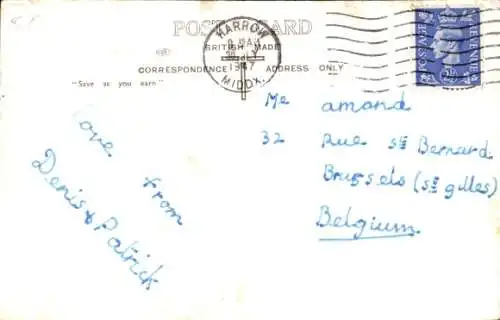 POST CARD
BRITISH MADE
CORRESPONDENCE ADDRESS ONLY
"Save as you earn"
HARROW
1947
MIDDX.
POSTAGE
REVENUE
love from
Denis & Patrick
Me amand
32 Rue ste Bernard
Brussels (st gilles)
Belgium